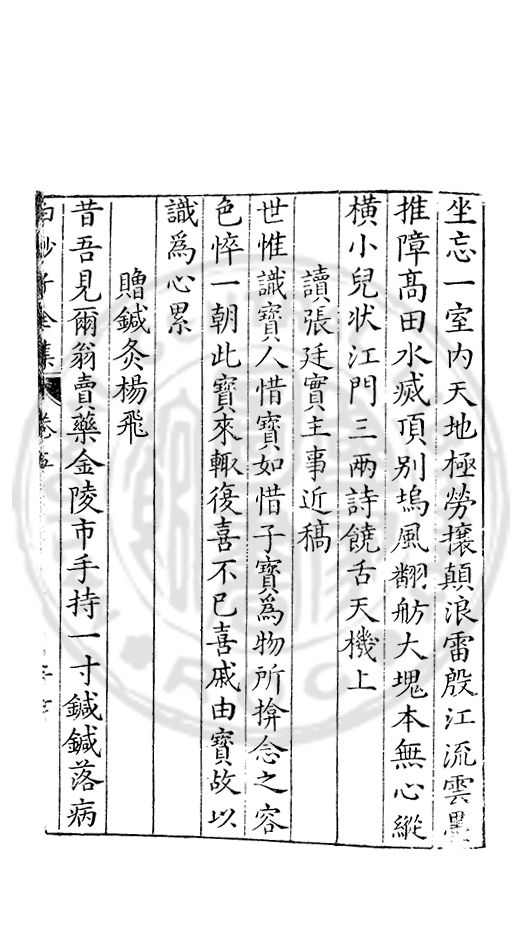 坐忘一室內天地極勞攘顛浪雷殷江流雲墨
推障高田水滅頂別塢風翻舫大塊本無心縱
橫小兒狀江門三兩詩饒舌天機上
讀張廷實主事近稿
世惟識寶人惜寶如惜子寶為物所揜念之容
色悴一朝此寶來輒復喜不已喜戚由寶故以
識為心累
贈鍼灸楊飛
昔吾見爾翁賣藥金陵市手持一寸鍼鍼落病
白沙子全集 卷五